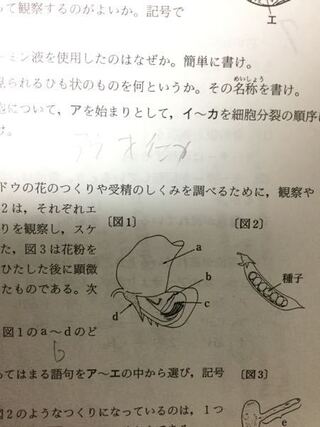 って観察するのがよいか。記号で
エ
ーミン液を使用したのはなぜか。簡単に書け。
見られるひも状のものを何というか。その名称を書け。
めいしょう
包について，アを始まりとして，イ～カを細胞分裂の順序に
け。
ドウの花のつくりや受精のしくみを調べるために，観察や
2は，それぞれエ
りを観察し，スケ
た，図3は花粉を
ひたした後に顕微
たものである。次
〔図1〕
〔図2〕
a
b
c
d
種子
図1のa～dのど
b
てはまる語句をア～エの中から選び，記号
〔図3〕
図2のようなつくりになっているのは，1つ
e